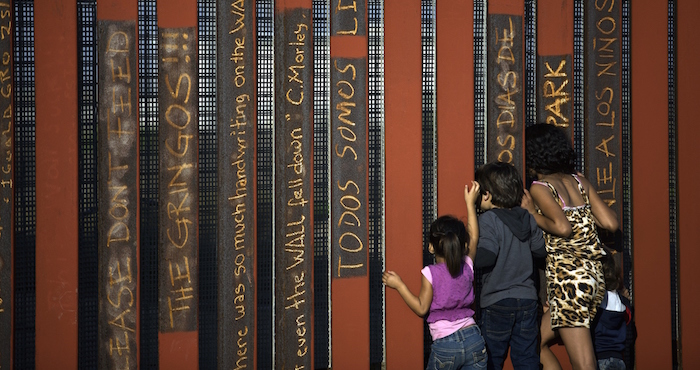 EASE DON'T FEED
THE GRINGOS!!!
here was so much handwriting on the WALL
even the WALL fell down" C. Morley
TODOS SOMOS LI
OS DIAS DE
PARK
NTE A LOS NIÑOS